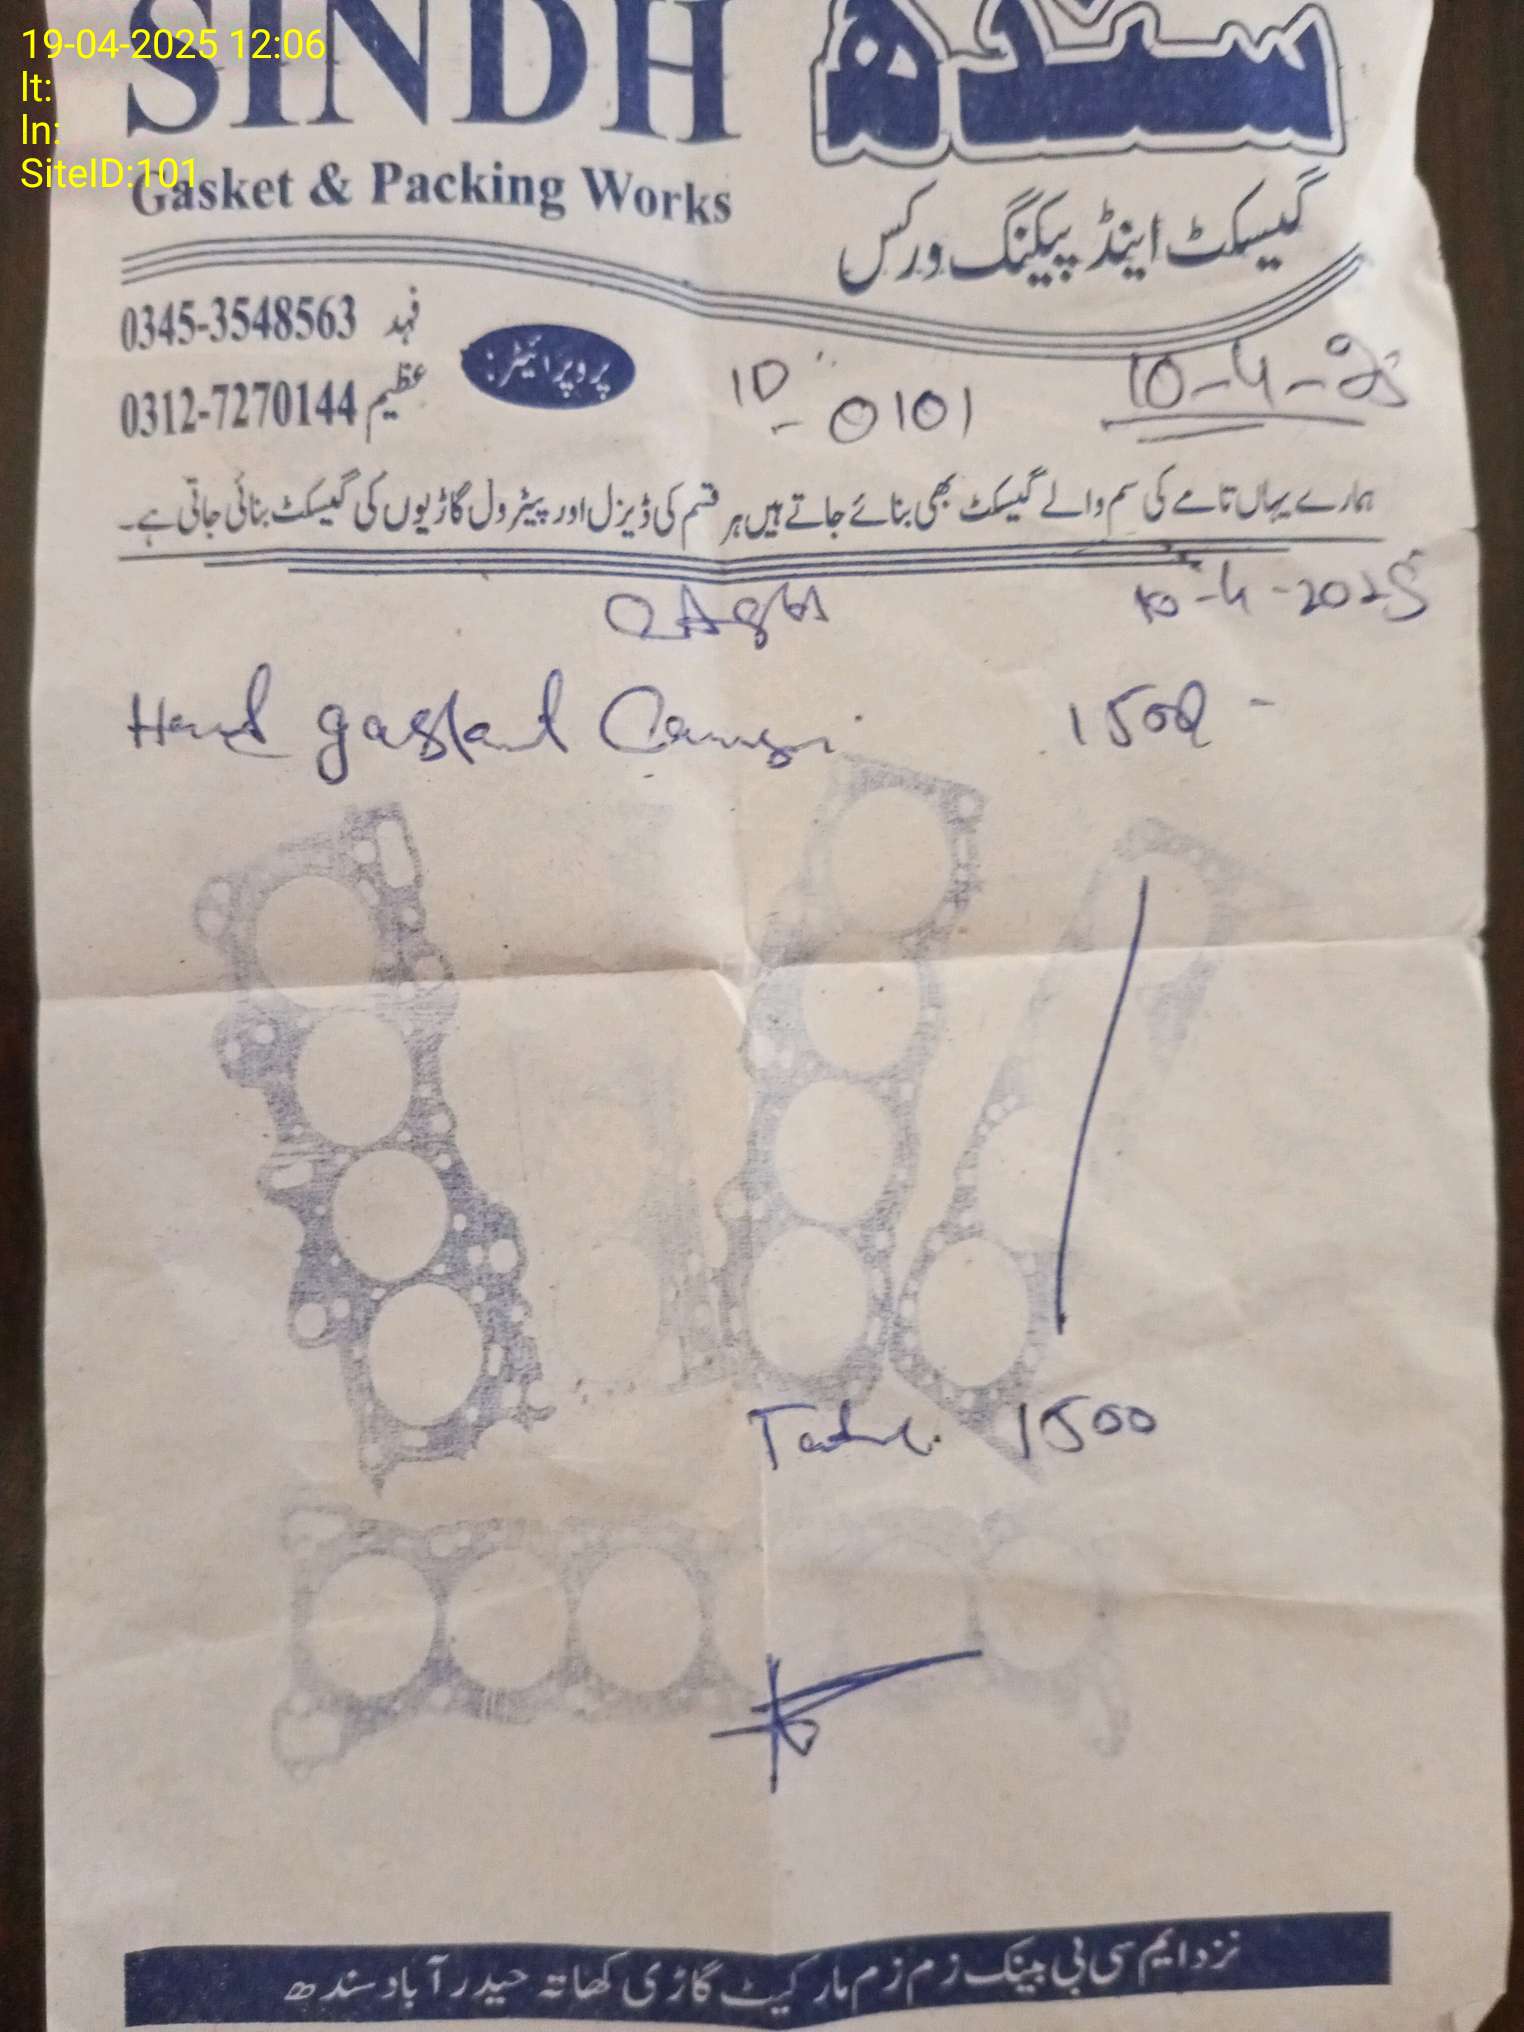 19-04-2025 12:06
lt:
ln:
SiteID:101
SINDH سندھ
Gasket & Packing Works
گیسکٹ اینڈ پیکنگ ورکس
0345-3548563 فہد
0312-7270144 عظیم
پروپرائیٹر:
ID - 0101
10-4-25
ہمارے یہاں تامے کی سم والے گیسکٹ بھی بنائے جاتے ہیں ہر قسم کی ڈیزل اور پیٹرول گاڑیوں کی گیسکٹ بنائی جاتی ہے۔
10-4-2025
1500 -
1500
نزد ایم سی بی بینک زم زم مارکیٹ گاڑی کھاتہ حیدرآباد سندھ